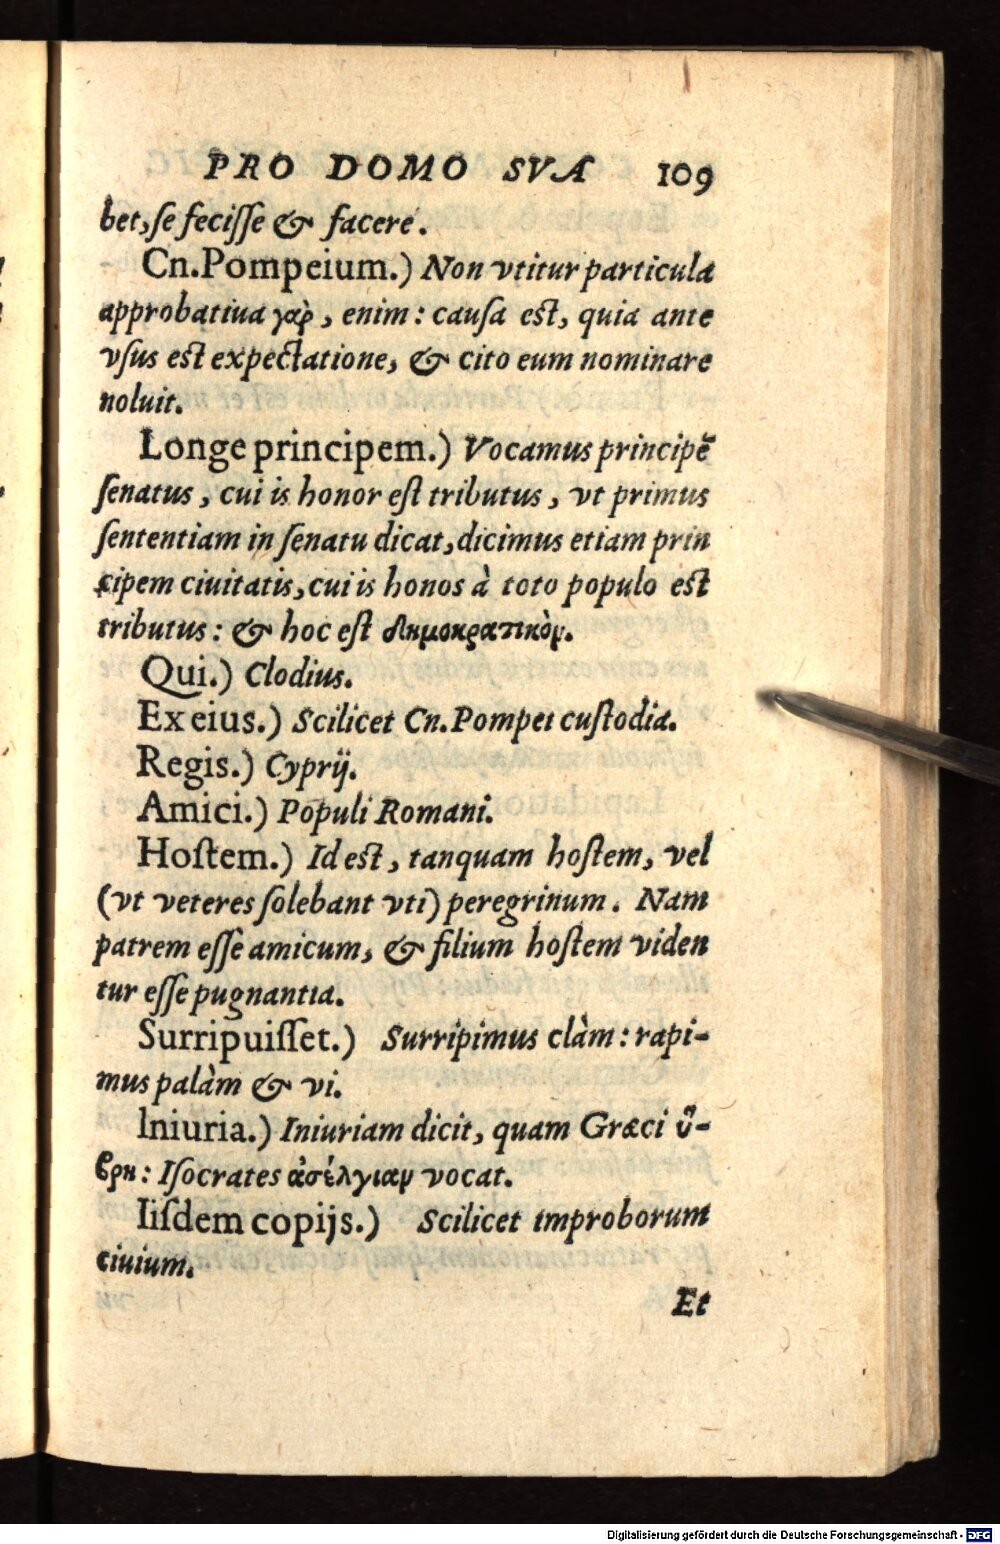 PRO DOMO SVA 109
bet, se fecisse & facere.
Cn. Pompeium.) Non vtitur particula
approbatiua γὰρ, enim: causa est, quia ante
vsus est expectatione, & cito eum nominare
noluit.
Longe principem.) Vocamus principē
senatus, cui is honor est tributus, vt primus
sententiam in senatu dicat, dicimus etiam prin
cipem ciuitatis, cui is honos à toto populo est
tributus: & hoc est δημοκρατικὸν.
Qui.) Clodius.
Ex eius.) Scilicet Cn. Pompei custodia.
Regis.) Cyprij.
Amici.) Populi Romani.
Hostem.) Id est, tanquam hostem, vel
(vt veteres solebant vti) peregrinum. Nam
patrem esse amicum, & filium hostem viden
tur esse pugnantia.
Surripuisset.) Surripimus clàm: rapi-
mus palàm & vi.
Iniuria.) Iniuriam dicit, quam Græci ὕ-
βρη: Isocrates ἀσέλγιαν vocat.
Iisdem copijs.) Scilicet improborum
ciuium.
Et
Digitalisierung gefördert durch die Deutsche Forschungsgemeinschaft - DFG